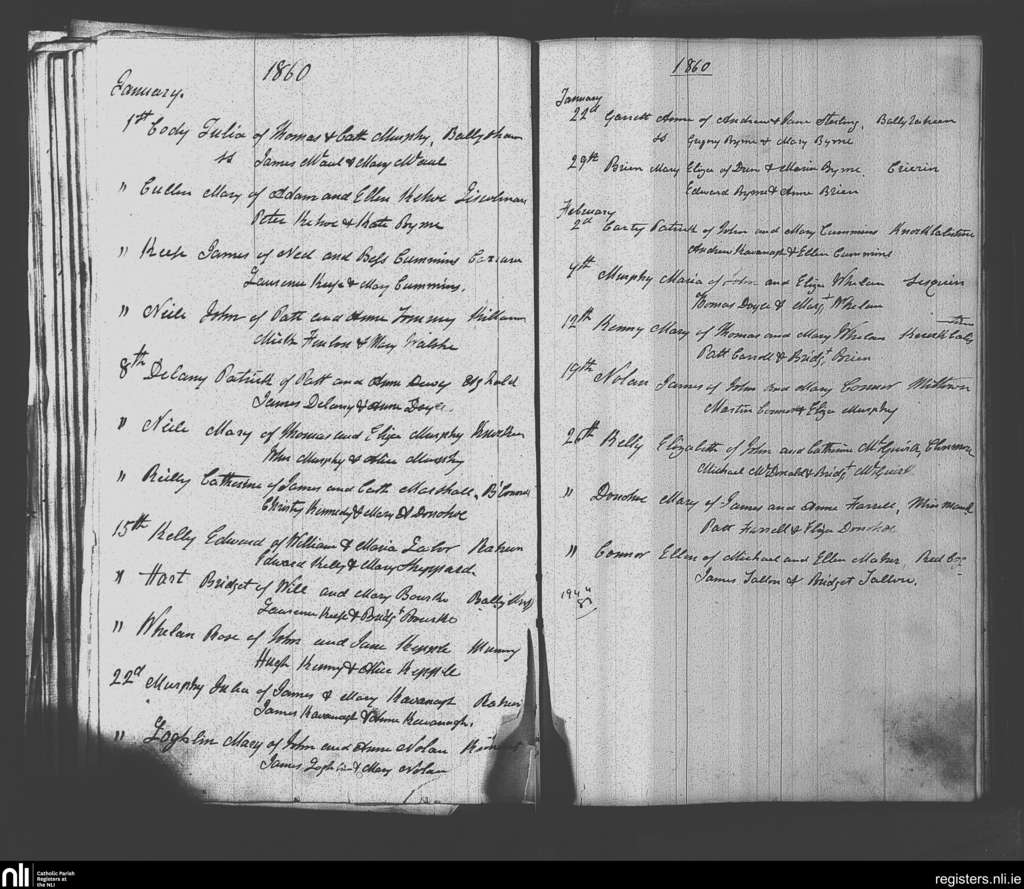 1860
January.
1st Cody Julia of Thomas & Cath Murphy, Ballyshaun
ss James McCaul & Mary McCaul
" Cullen Mary of Adam and Ellen Kehoe Liscolman
Peter Kehoe & Kate Byrne
" Keefe James of Ned and Bess Cummins
Laurence Keefe & Mary Cummins.
" Neile John of Patt and Anne Tommey
Mick Fenlon & Mary Walshe
8th Delany Patrick of Patt and Anne
James Delany & Anne Doyle.
" Neile Mary of Thomas and Eliza Murphy
John Murphy & Alice Murphy
" Reilly Catherine of James and Cath Marshall,
Christy Kennedy & Mary Donohoe
15th Kelly Edward of William & Maria Lalor Raheen
Edward Kelly & Mary Sheppard
" Hart Bridget of Will and Mary Bourke
Laurence Keefe & Bridgt Bourke
" Whelan Rose of John and Jane Kepple Munny
Hugh Kenny & Alice Kepple
22d Murphy Julia of James & Mary Kavanagh Raheen
James Kavanagh & Anne Kavanagh.
" Loghlin Mary of John and Anne Nolan
James Loghlin & Mary Nolan
1860
January
22d Garrett Anne of Andrew & Jane Sterling,
ss Gregory Byrne & Mary Byrne
29th Brien Mary Eliza of Dan & Maria Byrne
Edward Byrne & Anne Brien
February
2d Carty Patrick of John and Mary Cummins
Andrew Kavanagh & Ellen Cummins
9th Murphy Maria of John and Eliza Whelan
Thomas Doyle & Margt Whelan
12th Kenny Mary of Thomas and Mary Whelan
Patt Carroll & Bridgt Brien
19th Nolan James of John and Mary Connor Miltown
Martin Connor & Eliza Murphy
26th Kelly Elizabeth of John and Catherine
Michael McDonald & Bridgt
" Donohoe Mary of James and Anne Farrell,
Patt Farrell & Eliza Donohoe
" Connor Ellen of Michael and Ellen Maher
James Tallon & Bridget Tallon.
nli
Catholic Parish
Registers at
the NLI
registers.nli.ie